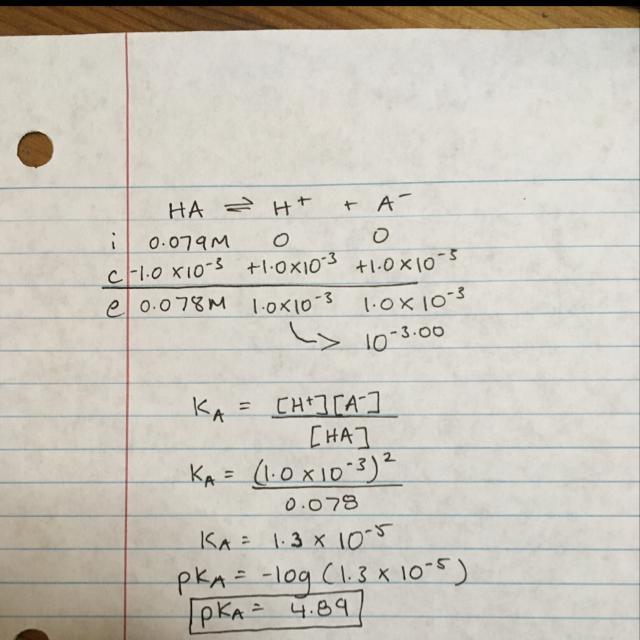 HA ⇌ H⁺ + A⁻
i 0.079M 0 0
c -1.0 ×10⁻³ +1.0×10⁻³ +1.0×10⁻³
e 0.078M 1.0×10⁻³ 1.0×10⁻³
↳ 10⁻³·⁰⁰
KA = [H⁺][A⁻]
[HA]
KA = (1.0 ×10⁻³)²
0.078
KA = 1.3 × 10⁻⁵
pKA = -log (1.3 × 10⁻⁵)
pKA = 4.89